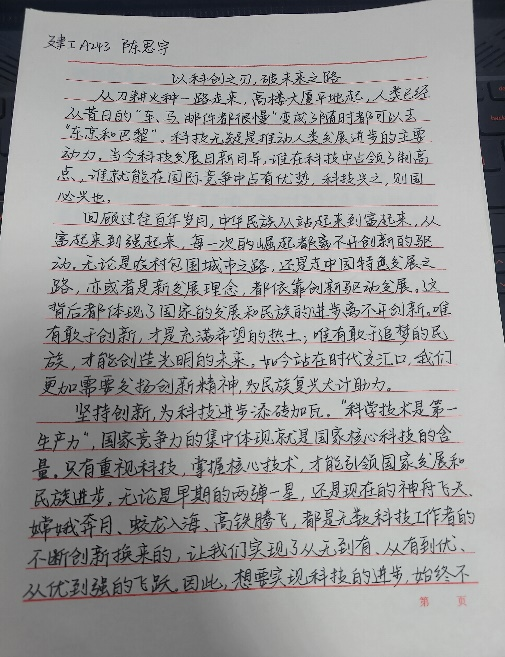 建工A243 陈思宇
以科创之刃,破未来之路
从刀耕火种一路走来,高楼大厦平地起,人类已经
从昔日的“车、马、邮件都很慢”变成了随时都可以去
“东京和巴黎”。科技无疑是推动人类发展进步的主要
动力。当今科技发展日新月异,谁在科技中占领了制高
点,谁就能在国际竞争中占有优势,科技兴之,则国
必兴也。
回顾过往百年岁月,中华民族从站起来到富起来,从
富起来到强起来,每一次的崛起都离不开创新的驱
动。无论是农村包围城市之路,还是走中国特色发展之
路,亦或者是新发展理念,都依靠创新驱动发展。这
背后都体现了国家的发展和民族的进步离不开创新。唯
有敢于创新,才是充满希望的热土;唯有敢于追梦的民
族,才能创造光明的未来。如今站在时代交汇口,我们
更加需要发扬创新精神,为民族复兴大计助力。
坚持创新,为科技进步添砖加瓦。“科学技术是第一
生产力”,国家竞争力的集中体现就是国家核心科技的含
量。只有重视科技,掌握核心技术,才能引领国家发展和
民族进步。无论是早期的两弹一星,还是现在的神舟飞天、
嫦娥奔月、蛟龙入海、高铁腾飞,都是无数科技工作者的
不断创新换来的,让我们实现了从无到有、从有到优、
从优到强的飞跃。因此,想要实现科技的进步,始终不
第 页